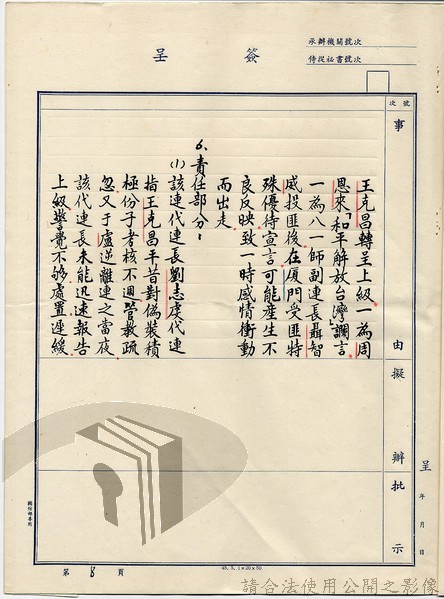 承辦機關號次
侍從祕書號次
簽呈
號次
事由
擬辦
批示
呈
年月日
王克昌轉呈上級一為周
恩來「和平解放台灣」讕言
一為八一師副連長聶智
威投匪後在厦門受匪特
殊優待宣言可能産生不
良反映致一時感情衝動
而出走
6.責任部分：
(1)該連代連長劉志虔代連
指王克昌平昔對偽裝積
極份子考核不週管教疏
忽又于盧逆離連之當夜
該代連長未能迅速報告
上級警覺不够處置遲緩
第8頁
請合法使用公開之影像